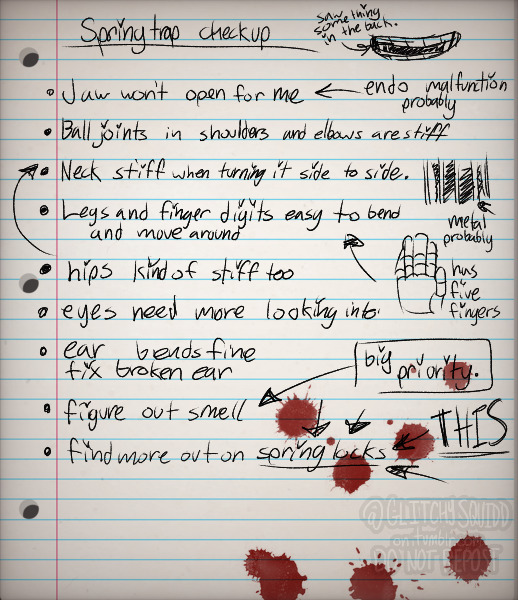 Springtrap checkup
saw
something
in the back.
Jaw won't open for me
endo malfunction
probably
Ball joints in shoulders and elbows are stiff
Neck stiff when turning it side to side.
Legs and finger digits easy to bend
and move around
metal
probably
hips kind of stiff too
has
five
fingers
eyes need more looking into
ear bends fine
fix broken ear
big
priority.
figure out smell
THIS
find more out on spring locks
@GLITCHYSQUIDD
on tumblr.com
DO NOT REPOST